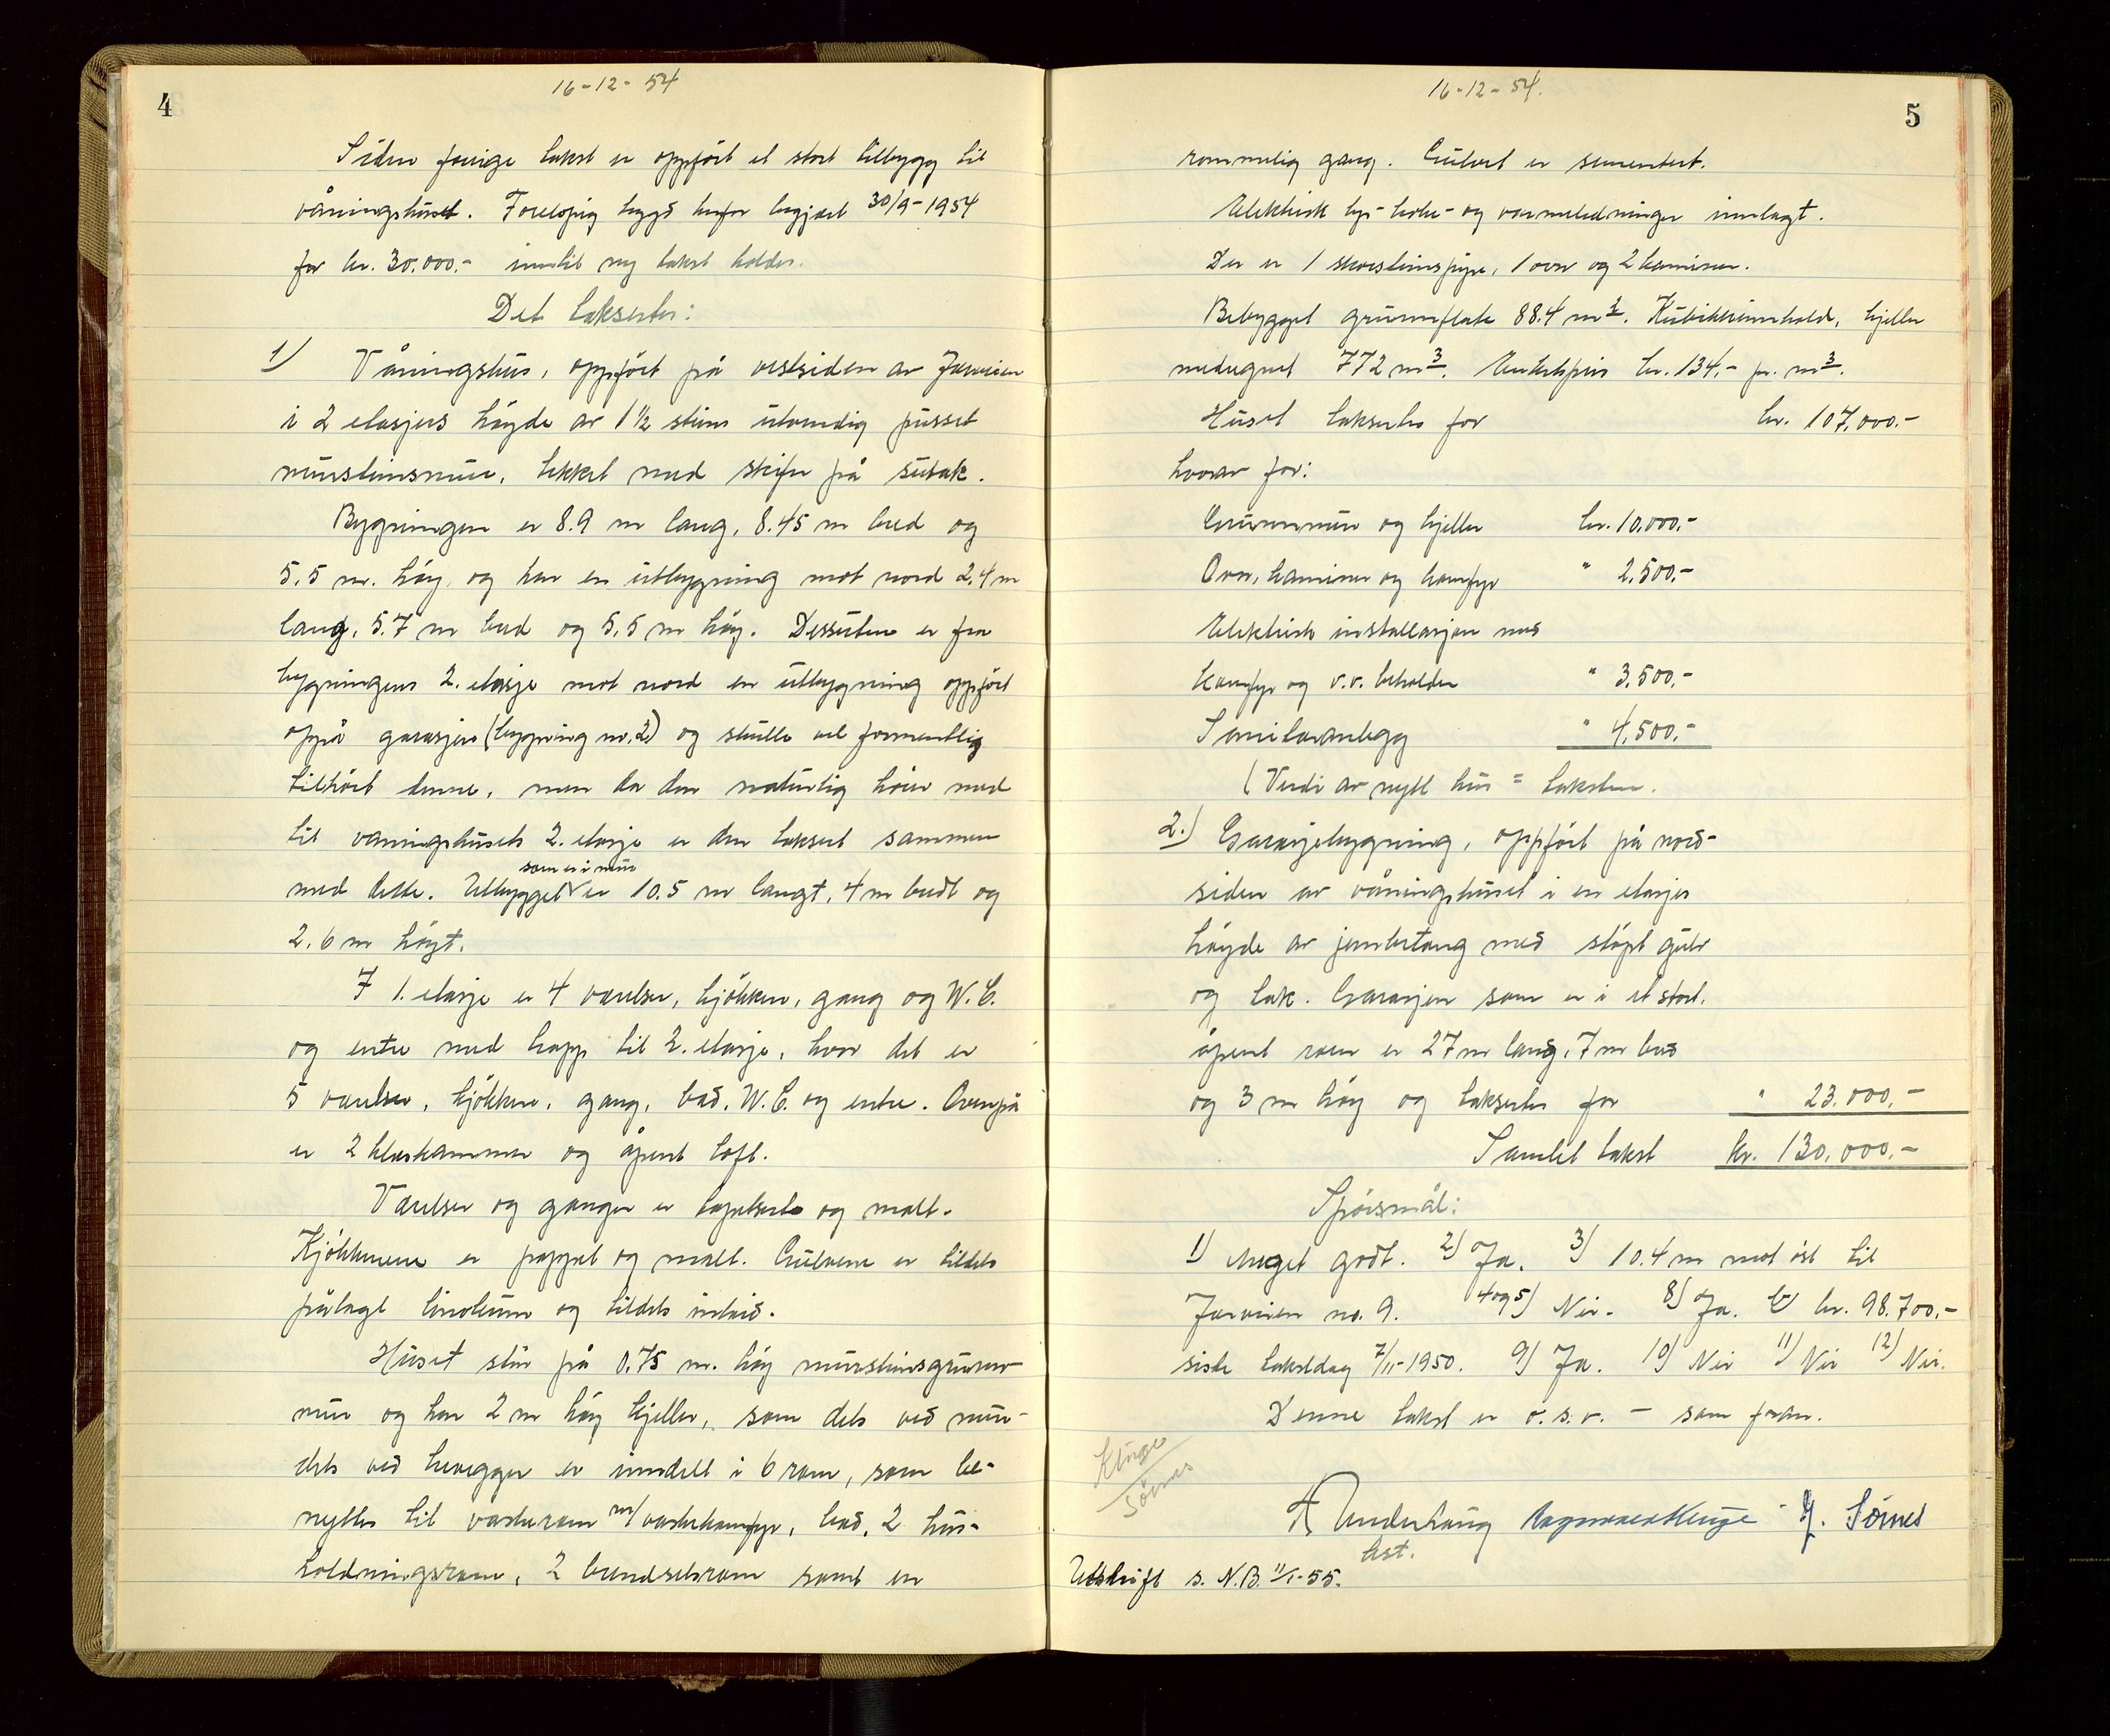 4
16-12-54
Siden forrige takst er oppført et stort tilbygg til
våningshuset. Foreløpig trygd herfor begjært 30/9-1954
for kr. 30.000.- inntil ny takst holdes.
Det takseres:
1) Våningshus, oppført på vestsiden av Jarveien
i 2 etasjers høyde av 1½ stens utvendig pusset
murstensmur, tekket med skifer på sutak.
Bygningen er 8.9 m lang, 8.45 m bred og
5.5 m. høy og har en utbygning mot nord 2.4 m
lang, 5.7 m bred og 5.5 m høy. Dessuten er fra
bygningens 2. etasje mot nord en utbygning oppført
oppå garasjen (bygning nr. 2) og skulle vel formentlig
tilhørt denne, men da den naturlig hører med
til våningshusets 2. etasje er den taksert sammen
som er i mur
med dette. Utbygget er 10.5 m langt, 4 m bredt og
2.6 m høyt.
I 1. etasje er 4 værelser, kjøkken, gang og W.C.
og entre med trapp til 2. etasje, hvor det er
5 værelser, kjøkken, gang, bad, W.C. og entre. Ovenpå
er 2 kleskammer og åpent loft.
Værelser og ganger er tapetsert og malt.
Kjøkkenene er pappet og malt. Gulvene er tildels
pålagt linoleum og tildels inlaid.
Huset står på 0.75 m. høy murstensgrunn-
mur og har 2 m høy kjeller, som dels ved mur-
dels ved trevegger er inndelt i 6 rom, som be-
nyttes til vaskerom m/vaskekomfyr, bad, 2 hus-
holdningsrom, 2 brendselsrom samt en
5
16-12-54.
rommelig gang. Gulvet er sementert.
Elektrisk lys- koke- og varmeledninger innlagt.
Der er 1 skorstenspipe, 1 ovn og 2 kaminer.
Bebygget grunnflate 88.4 m². Kubikkinnhold, kjeller
medregnet 772 m³. Enhetspris kr. 134.- pr. m³.
Huset takseres for kr. 107.000.-
hvorav for:
Grunnmur og kjeller kr. 10.000.-
Ovn, kaminer og komfyr " 2.500.-
Elektrisk installasjon med
komfyr og v.v. beholder " 3.500.-
Sanitæranlegg " 4.500.-
(Verdi av nytt hus = taksten.
2.) Garasjebygning, oppført på nord-
siden av våningshuset i en etasjes
høyde av jernbetong med støpt gulv
og tak. Garasjen som er i et stort,
åpent rom er 27 m lang, 7 m bred
og 3 m høy og takseres for " 23.000.-
Samlet takst kr. 130.000.-
Spørsmål:
1) Meget godt. 2) Ja. 3) 10.4 m mot øst til
Jarveien nr. 9. 4 og 5) Nei. 8) Ja. b) kr. 98.700.-
siste takstdag 7/11-1950. 9) Ja. 10) Nei 11) Nei 12) Nei.
Denne takst er o.s.v. - som foran.
Kluge
Sørnes
Underhaug Kluge Sørnes
Utskrift s. N.B. 11/1-55.